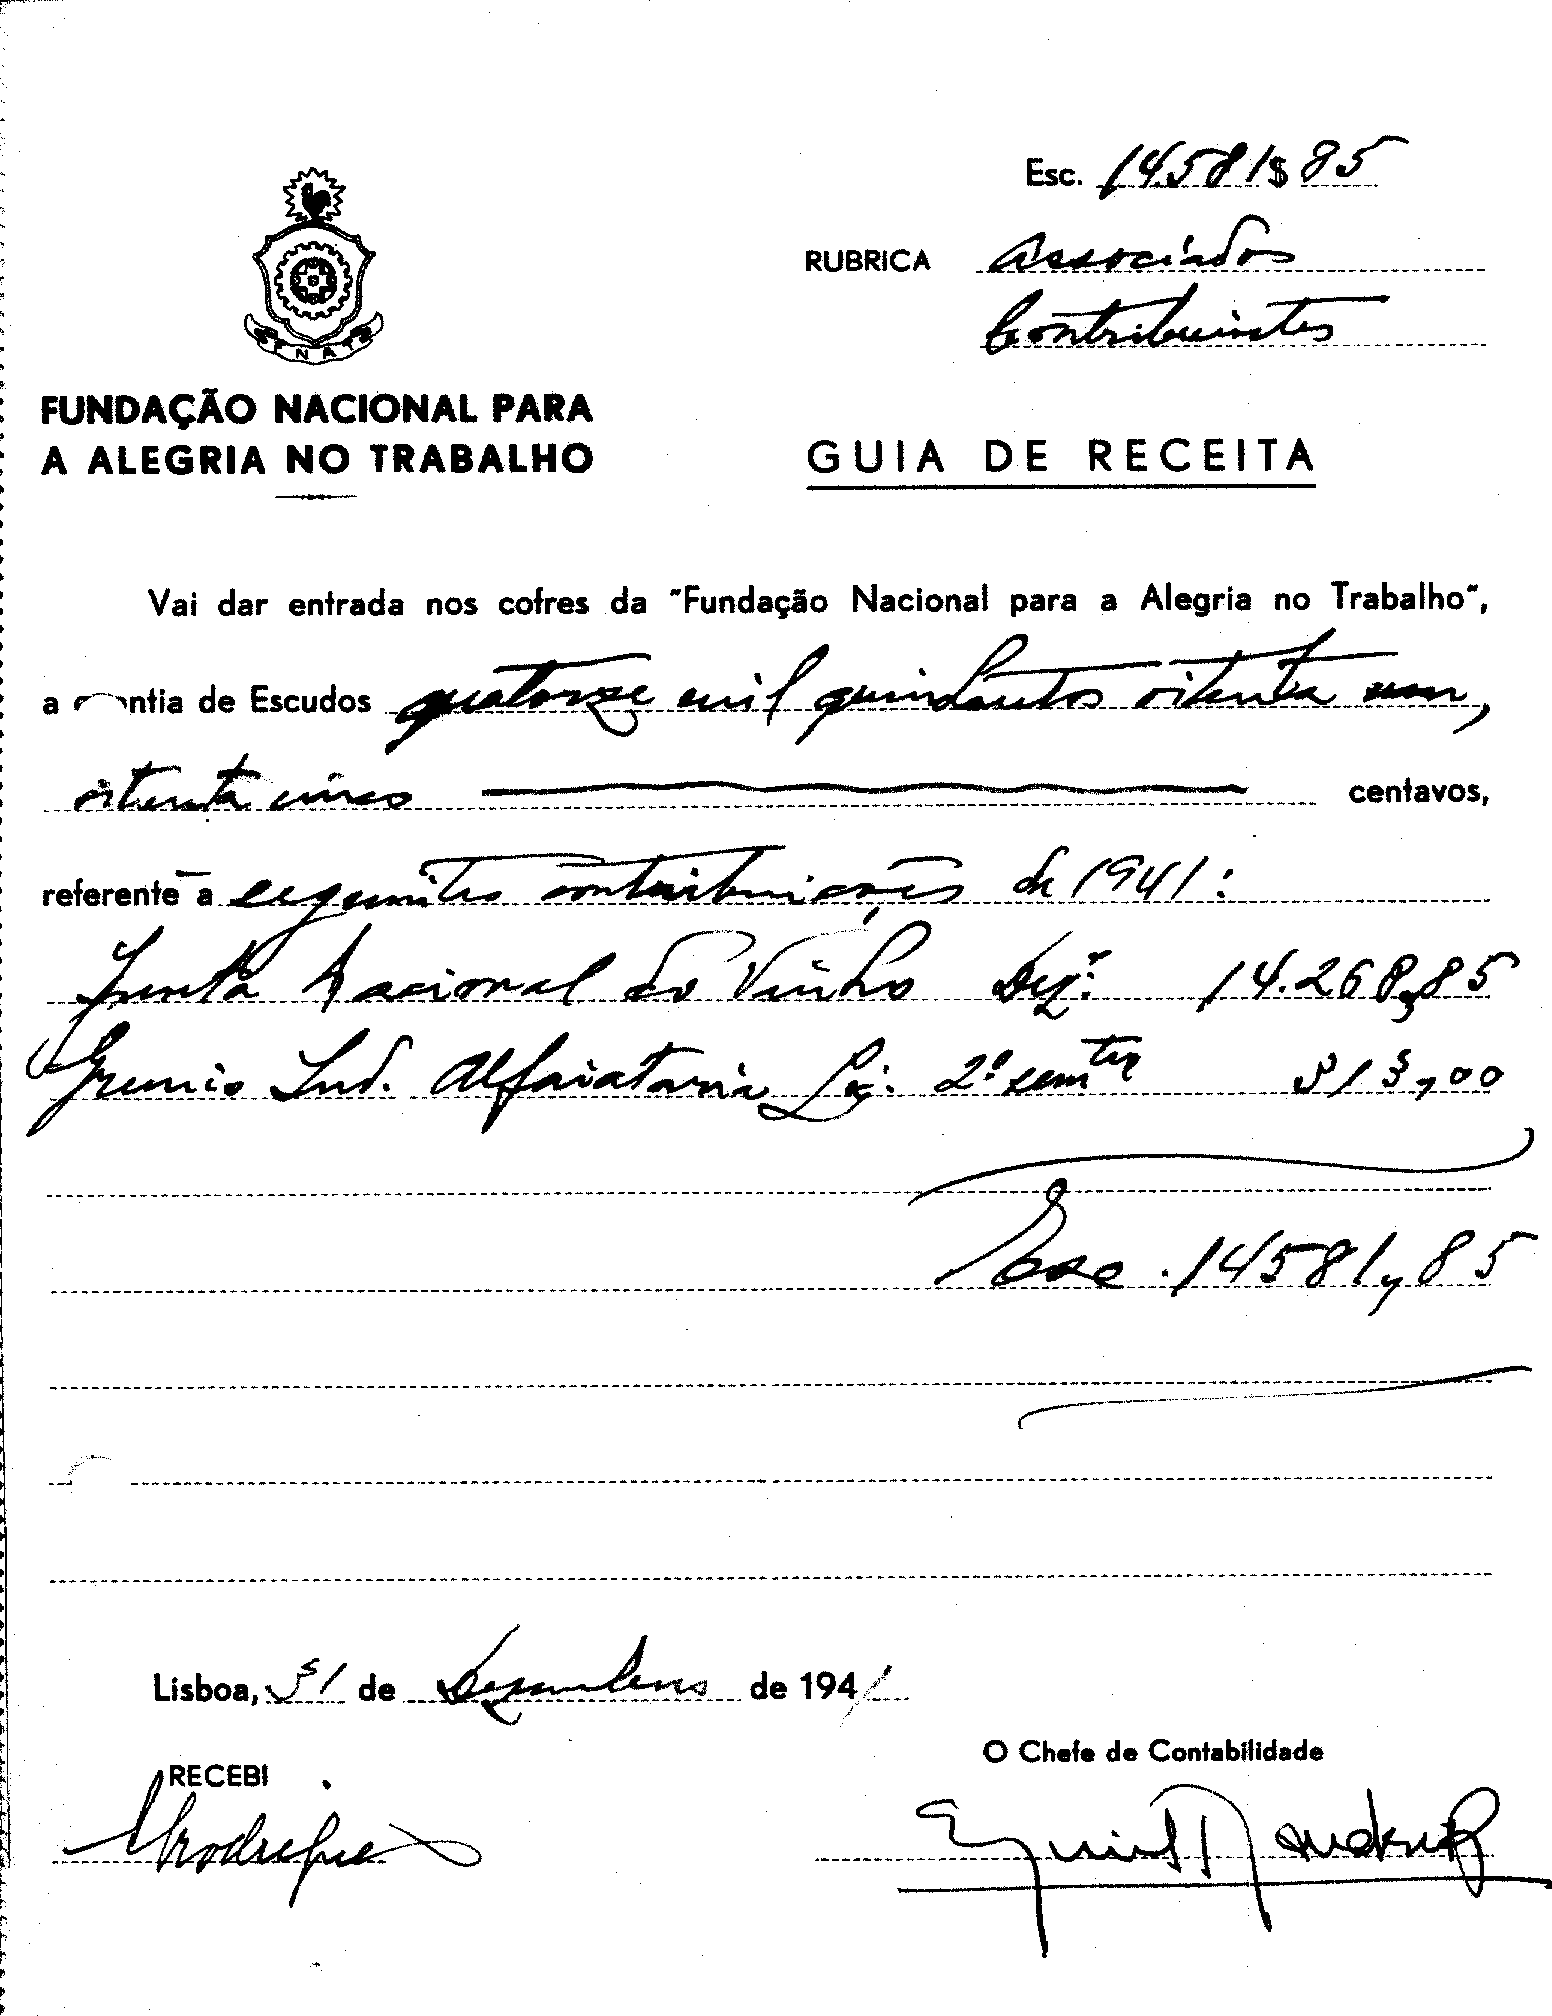 Esc. 14.581$85
RUBRICA Associados
Contribuintes
FNAT
FUNDAÇÃO NACIONAL PARA
A ALEGRIA NO TRABALHO
GUIA DE RECEITA
Vai dar entrada nos cofres da "Fundação Nacional para a Alegria no Trabalho",
a quantia de Escudos quatorze mil quinhentos oitenta um,
oitenta cinco centavos,
referente a seguintes contribuições de 1941:
Junta Nacional do Vinho Dezº. 14.268,85
Gremio Ind. Alfaiataria Lix. 2º semtre 313,00
Esc. 14581,85
Lisboa, 31 de Dezembro de 1941
RECEBI
O Chefe de Contabilidade
Rodrigues